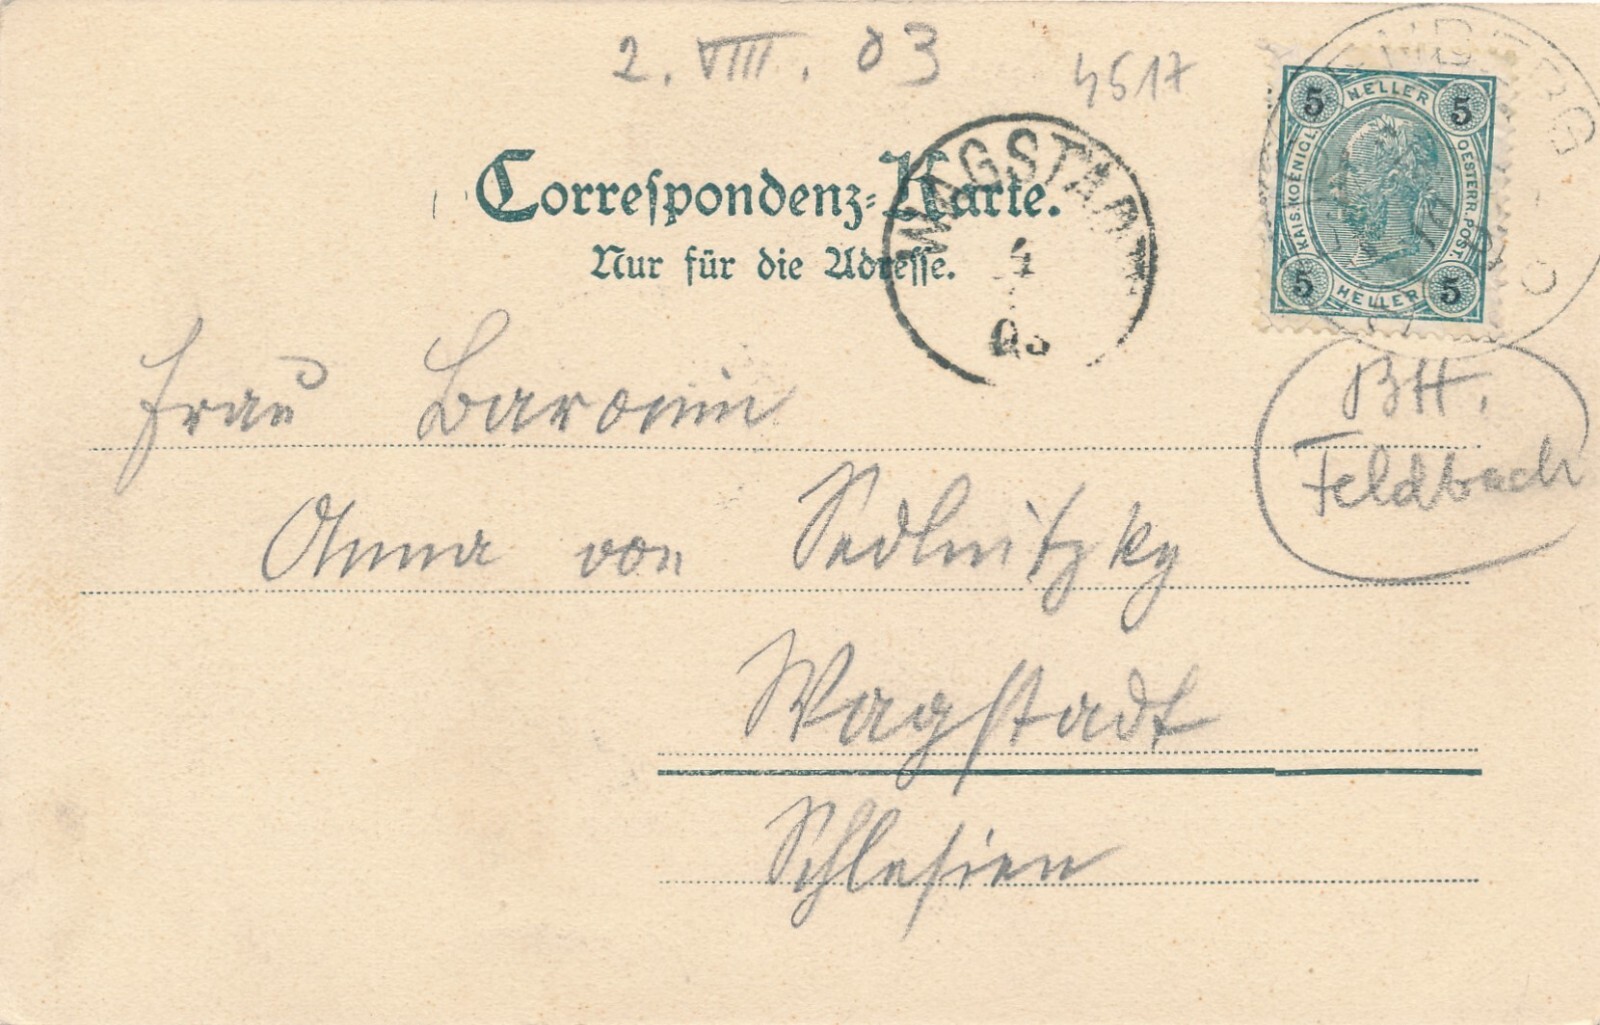 2. VIII. 03
4517
Correſpondenz=Karte.
Nur für die Adreſſe.
WAGSTADT
4
03
5 HELLER 5
KAIS. KOENIGL. OESTERR. POST.
5 HELLER 5
BH.
Feldbach
Frau Baronin
Anna von Sedlnitzky
Wagstadt
Schlesien